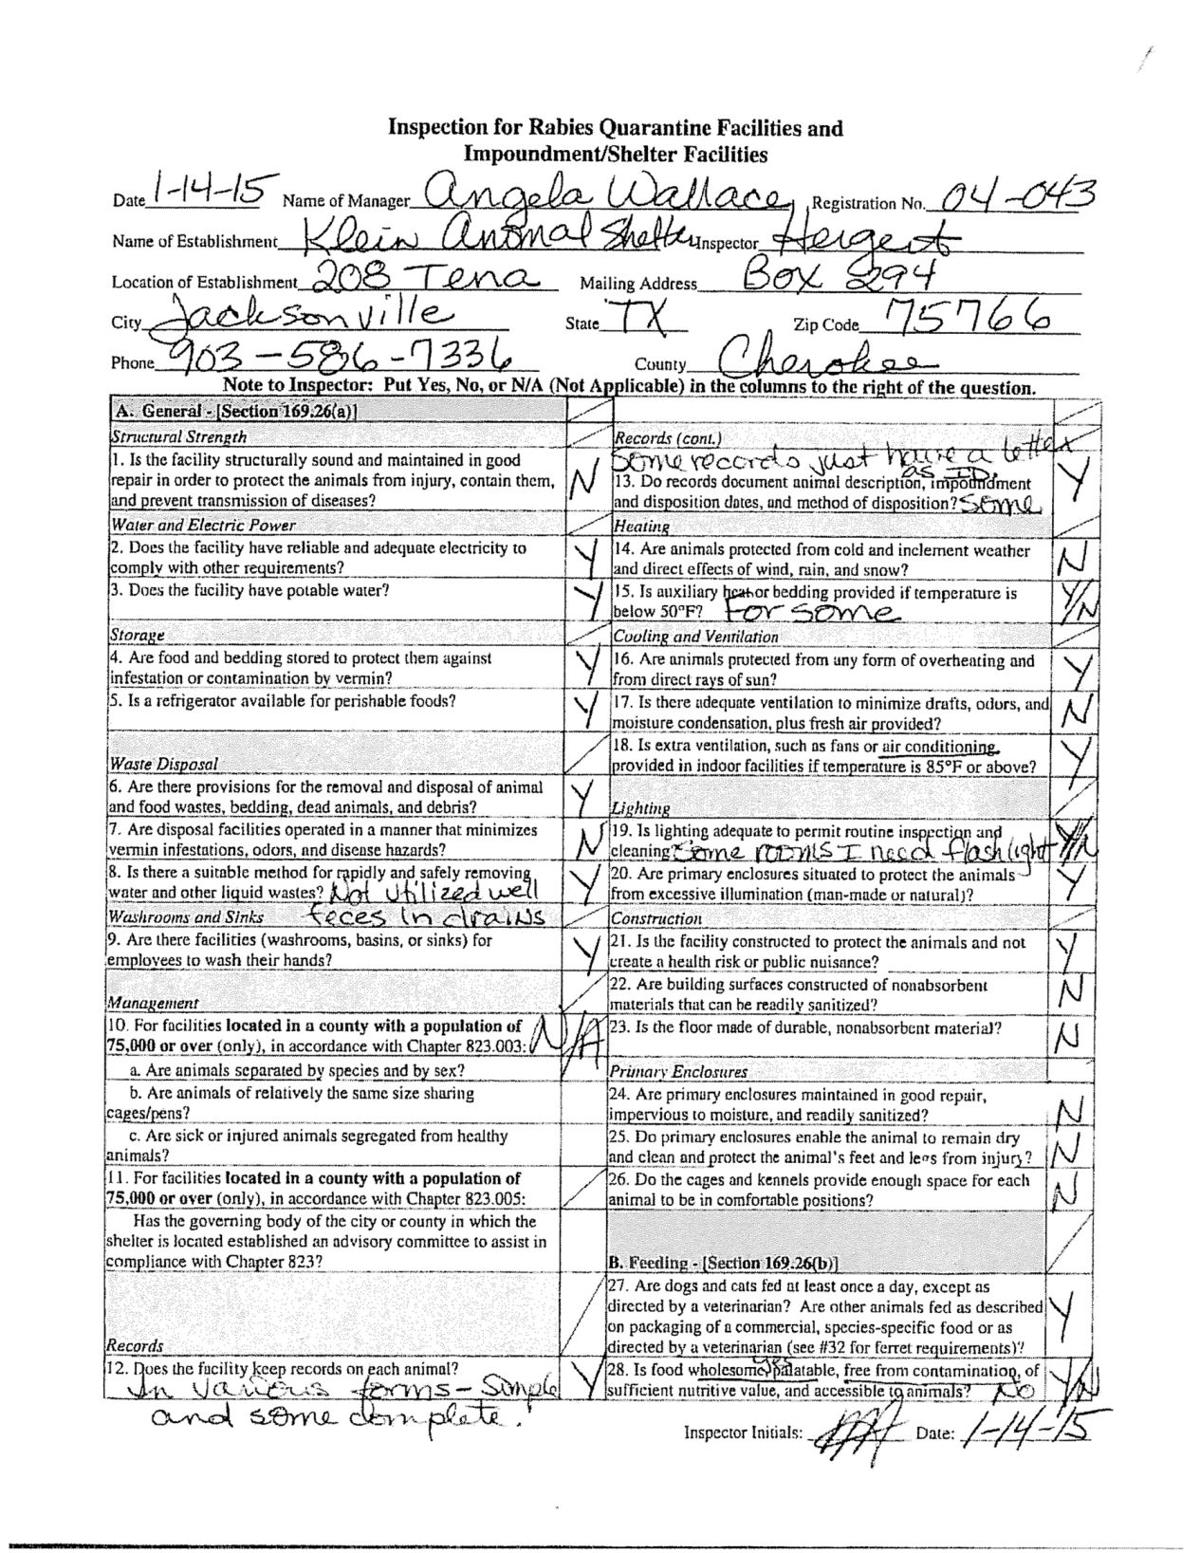 Inspection for Rabies Quarantine Facilities and
Impoundment/Shelter Facilities
Date 1-14-15 Name of Manager Angela Wallace, Registration No. 04-043
Name of Establishment Klein Anomal Shelter Inspector Hergert
Location of Establishment 208 Tena Mailing Address Box 8294
City Jacksonville State TX Zip Code 75766
Phone 903-586-7336 County Cherokee
Note to Inspector: Put Yes, No, or N/A (Not Applicable) in the columns to the right of the question.
A. General - [Section 169.26(a)]
Structural Strength
1. Is the facility structurally sound and maintained in good
repair in order to protect the animals from injury, contain them, N
and prevent transmission of diseases?
Water and Electric Power
2. Does the facility have reliable and adequate electricity to Y
comply with other requirements?
3. Does the facility have potable water? Y
Storage
4. Are food and bedding stored to protect them against Y
infestation or contamination by vermin?
5. Is a refrigerator available for perishable foods? Y
Waste Disposal
6. Are there provisions for the removal and disposal of animal Y
and food wastes, bedding, dead animals, and debris?
7. Are disposal facilities operated in a manner that minimizes N
vermin infestations, odors, and disease hazards?
8. Is there a suitable method for rapidly and safely removing Y
water and other liquid wastes? Not utilized well
Washrooms and Sinks feces in drains
9. Are there facilities (washrooms, basins, or sinks) for Y
employees to wash their hands?
Management
10. For facilities located in a county with a population of N/A
75,000 or over (only), in accordance with Chapter 823.003:
a. Are animals separated by species and by sex?
b. Are animals of relatively the same size sharing
cages/pens?
c. Are sick or injured animals segregated from healthy
animals?
11. For facilities located in a county with a population of
75,000 or over (only), in accordance with Chapter 823.005:
Has the governing body of the city or county in which the
shelter is located established an advisory committee to assist in
compliance with Chapter 823?
Records
12. Does the facility keep records on each animal? Y
In various forms - Simple
and some complete.
Records (cont.)
Some records just have a letter
as ID.
13. Do records document animal description, impoundment Y
and disposition dates, and method of disposition? Some
Heating
14. Are animals protected from cold and inclement weather N
and direct effects of wind, rain, and snow?
15. Is auxiliary heat or bedding provided if temperature is Y/N
below 50°F? For some
Cooling and Ventilation
16. Are animals protected from any form of overheating and Y
from direct rays of sun?
17. Is there adequate ventilation to minimize drafts, odors, and N
moisture condensation, plus fresh air provided?
18. Is extra ventilation, such as fans or air conditioning, Y
provided in indoor facilities if temperature is 85°F or above?
Lighting
19. Is lighting adequate to permit routine inspection and Y/N
cleaning Some rooms I need flashlight
20. Are primary enclosures situated to protect the animals Y
from excessive illumination (man-made or natural)?
Construction
21. Is the facility constructed to protect the animals and not Y
create a health risk or public nuisance?
22. Are building surfaces constructed of nonabsorbent N
materials that can be readily sanitized?
23. Is the floor made of durable, nonabsorbent material? N
Primary Enclosures
24. Are primary enclosures maintained in good repair, N
impervious to moisture, and readily sanitized?
25. Do primary enclosures enable the animal to remain dry N
and clean and protect the animal's feet and legs from injury?
26. Do the cages and kennels provide enough space for each N
animal to be in comfortable positions?
B. Feeding - [Section 169.26(b)]
27. Are dogs and cats fed at least once a day, except as
directed by a veterinarian? Are other animals fed as described Y
on packaging of a commercial, species-specific food or as
directed by a veterinarian (see #32 for ferret requirements)?
28. Is food wholesome, yes palatable, free from contamination, of Y/N
sufficient nutritive value, and accessible to animals? No
Inspector Initials: Date: 1-14-15